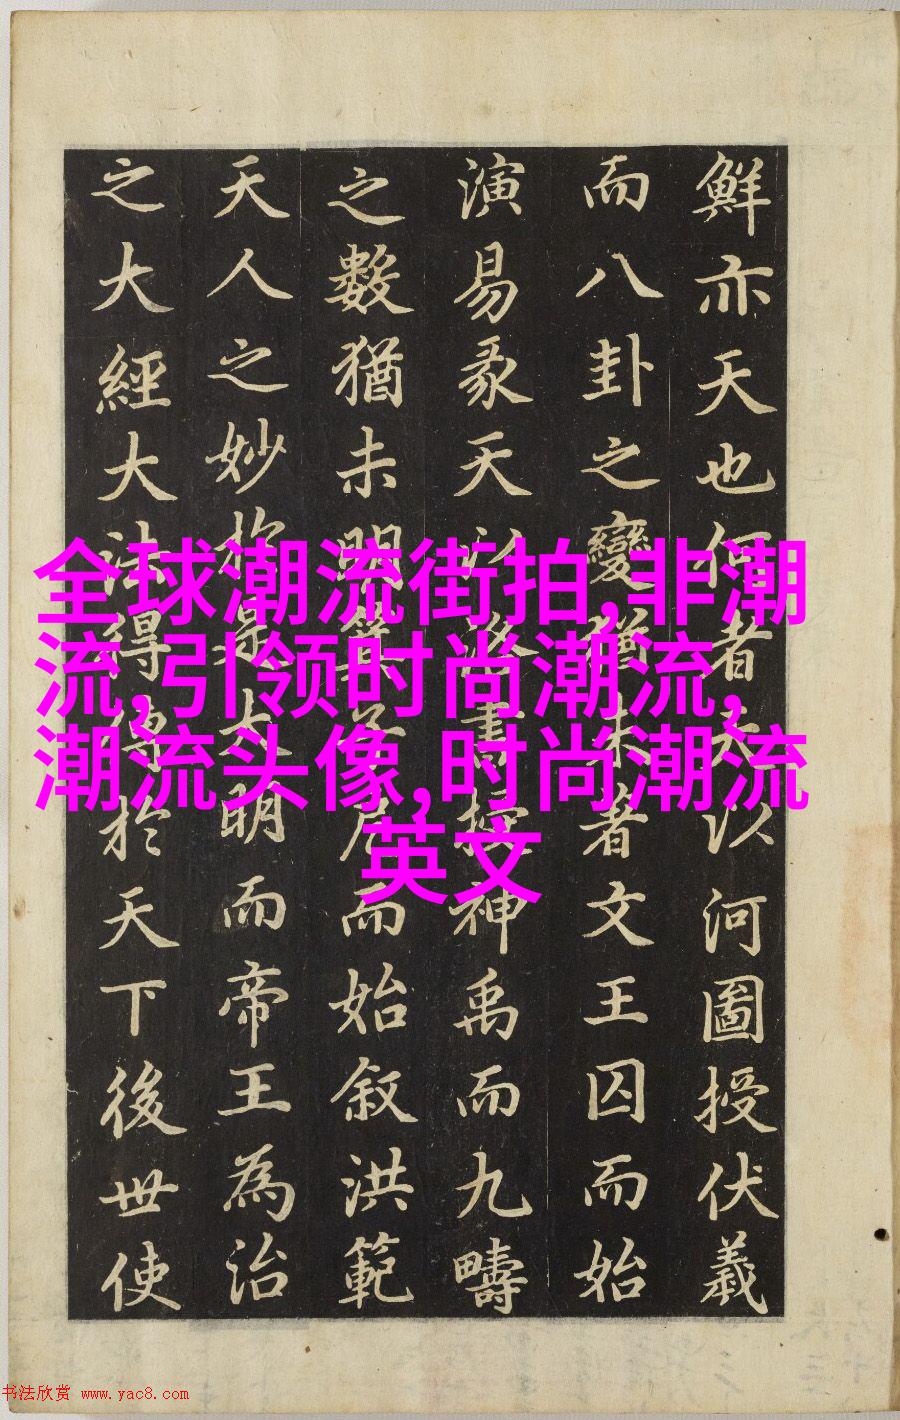 鮮亦天也何者天以河圖授伏羲
而八卦之變猶未著文王囚而始
演易彖天以洛書授神禹而九疇
之數猶未明箕子而始叙洪範
天人之妙於是大明而帝王為治
之大經大法得傳於天下後世使
全球潮流街拍,非潮
流,引领时尚潮流,
潮流头像,时尚潮流
英文
书法欣赏 www.yac8.com